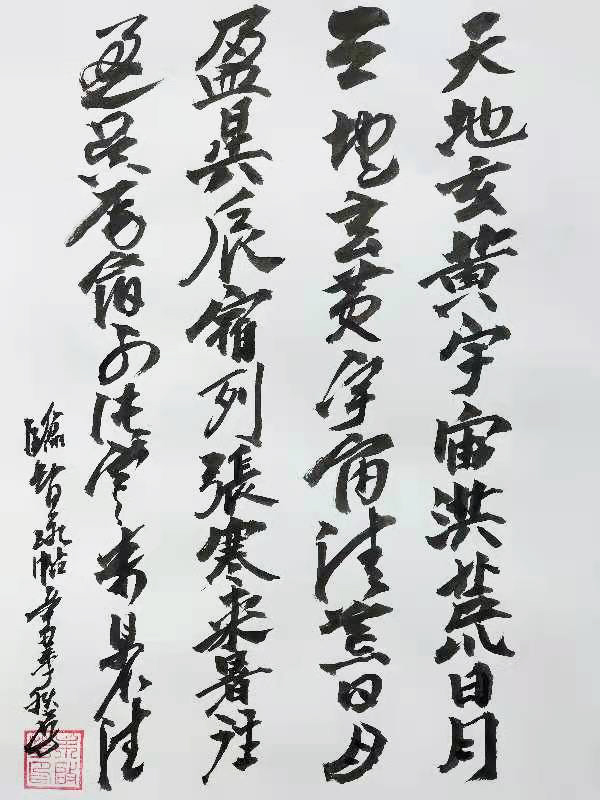 天地玄黃宇宙洪荒日月
天地玄黄宇宙洪荒日月
盈昃辰宿列張寒来暑往
盈昃辰宿列張寒来暑往
臨智永帖辛丑季秋